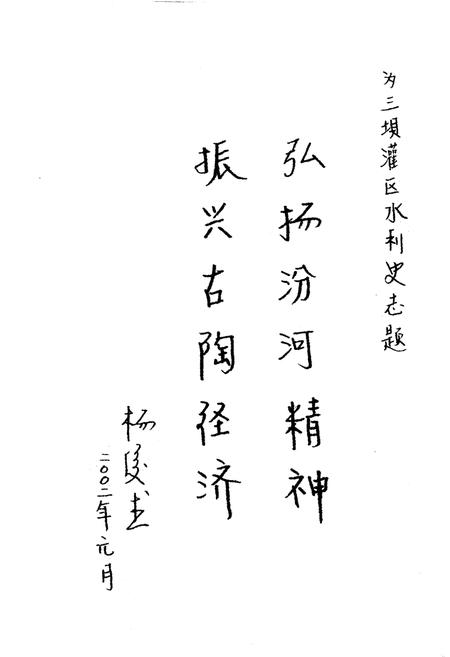 为三坝灌区水利史志题
弘扬汾河精神
振兴古陶经济
杨
二〇〇二年元月